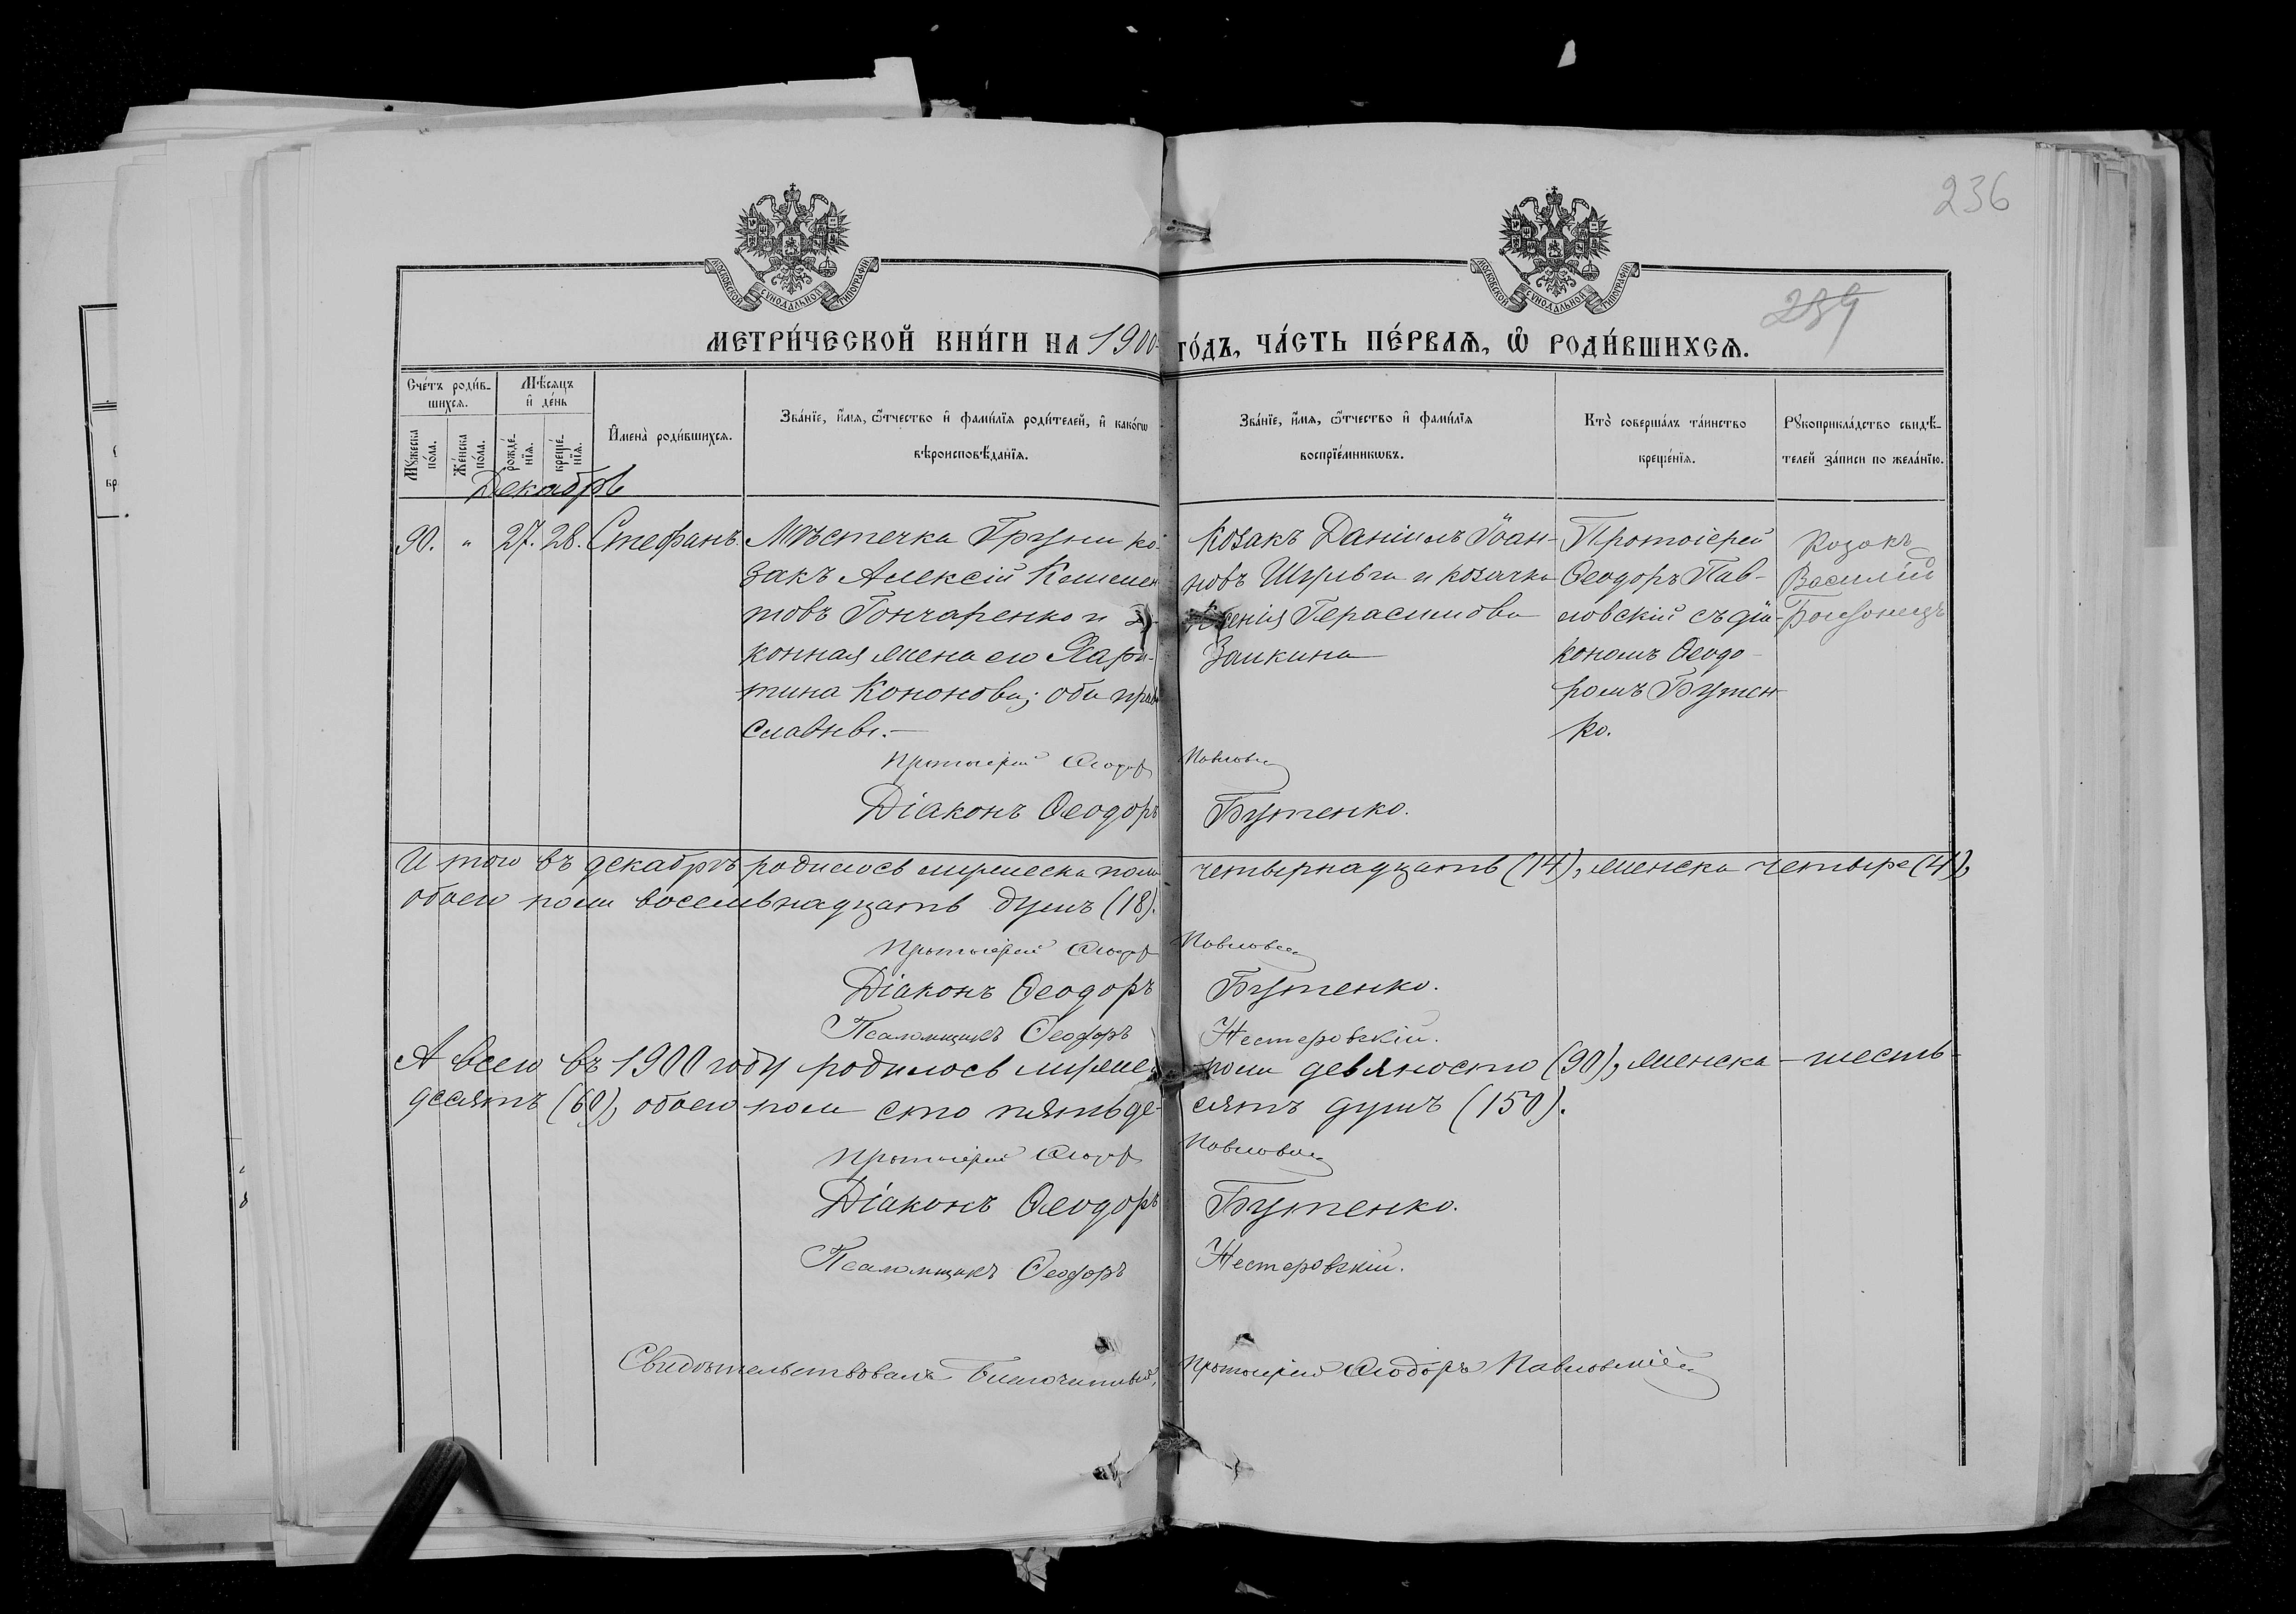 236
МОСКОВСКОЙ СѴНОДАЛЬНОЙ ТИПОГРАФІИ
МОСКОВСКОЙ СѴНОДАЛЬНОЙ ТИПОГРАФІИ
МЕТРИ́ЧЕСКОЙ КНИ́ГИ НА 1900 ГО́ДЪ, ЧА́СТЬ ПЕ́РВАѦ, Ѿ РОДИ́ВШИХСѦ.
Сче́тъ роди́в-
шихсѧ.
Мѣ́сѧцъ
и҆ де́нь
Мꙋ́жеска по́ла.
Же́нска по́ла.
рожде́-
нїѧ.
креще́-
нїѧ.
И҆мена̀ роди́вшихсѧ.
Зва́нїе, и҆́мѧ, ѻ҆́тчество и҆ фами́лїѧ роди́телей, и҆ како́гѡ
вѣроисповѣ́данїѧ.
Зва́нїе, и҆́мѧ, ѻ҆́тчество и҆ фами́лїѧ
воспрїе́мникѡвъ.
Кто̀ соверша́лъ та́инство
креще́нїѧ.
Рꙋкоприкла́дство свидѣ́-
телей за́писи по жела́нїю.
Декабрь
90. " 27. 28. Стефанъ.
Мѣстечка Груни ко-
закъ Алексій Климен
товъ Гончаренко и за-
конная жена его Хари-
тина Кононова; оба право
славны.-
Козакъ Даніилъ Іоан-
новъ Шульга и козачка
Ксенія Герасимова
Заикина
Протоіерей
Ѳеодоръ Пав-
ловскій съ діа-
кономъ Ѳеодо-
ромъ Бутен-
ко.
Козакъ
Василій
Протоіерей Ѳеодоръ Павловскій
Діаконъ Ѳеодоръ Бутенко.
Итого въ декабрѣ родилось мужеска пола четырнадцать (14), женска четыре (4),
обоего пола восемьнадцать душъ (18).
Протоіерей Ѳеодоръ Павловскій
Діаконъ Ѳеодоръ Бутенко.
Псаломщикъ Ѳеодоръ Нестеровскій.
А всего въ 1900 году родилось мужеск. пола девяносто (90), женска - шесть-
десятъ (60), обоего пола сто пятьде- сятъ душъ (150).
Протоіерей Ѳеодоръ Павловскій
Діаконъ Ѳеодоръ Бутенко.
Псаломщикъ Ѳеодоръ Нестеровскій.
Свидѣтельствовалъ Благочинный, Протоіерей Ѳеодоръ Павловскій